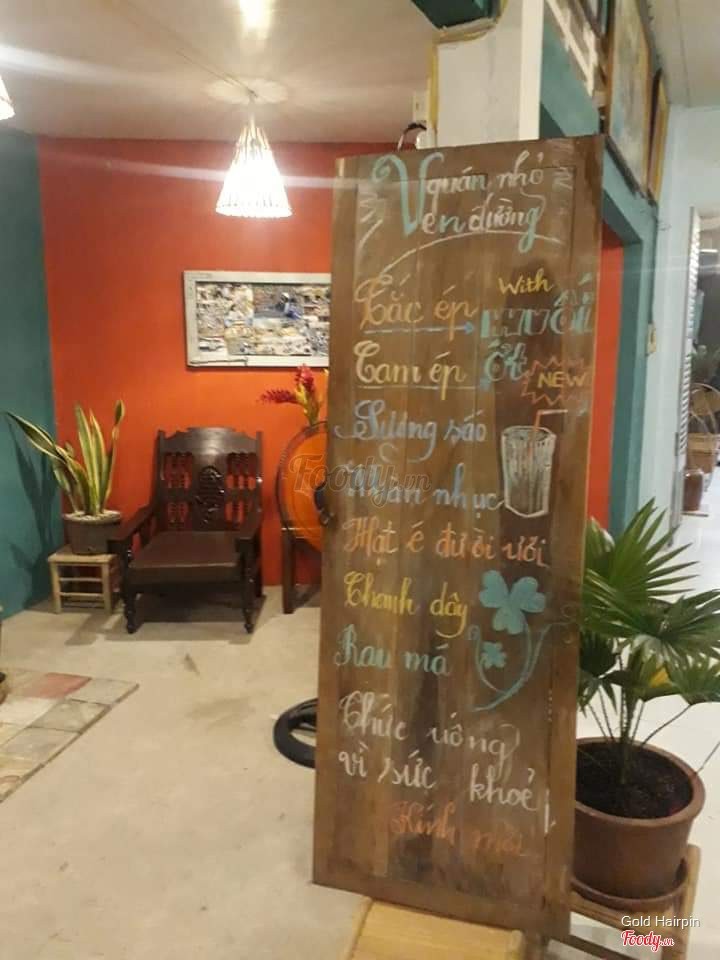 quán nhỏ
Ven đường
Tắc ép With muối
Cam ép ớt
NEW
Sương sáo
Nhàn nhục
Hạt é đười ươi
Chanh dây
Rau má
Thức uống
vì sức khoẻ!
Kính mời
Foody.vn
Gold Hairpin
Foody.vn